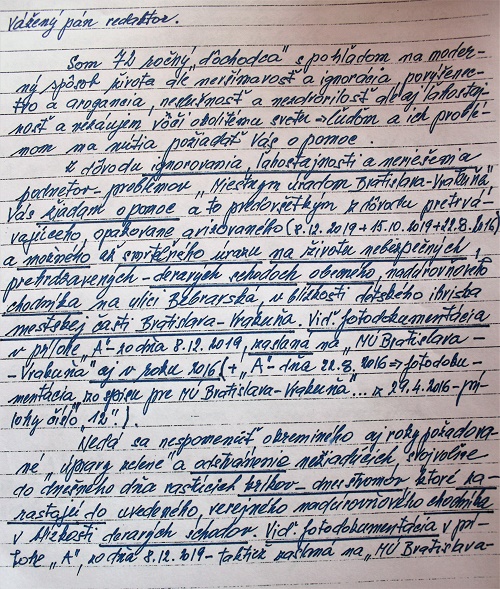 Vážený pán redaktor.
Som 72 ročný "dôchodca" s pohľadom na moder-
ný spôsob života ale nevšímavosť a ignorácia, povýšenec-
tvo a arogancia, neslušnosť a nezdvorilosť ale aj ľahostaj-
nosť a nezáujem vôči okolitému svetu => ľuďom a ich problé-
mom ma nútia požiadať Vás o pomoc.
Z dôvodu ignorovania, ľahostajnosti a neriešenia
podnetov - problémov "Miestnym úradom Bratislava-Vrakuňa"
Vás žiadam o pomoc a to predovšetkým z dôvodu pretrvá-
vajúceho, opakovane avizovaného (8.12.2019+15.10.2019+22.8.2016)
a možného až smrteľného úrazu na životu nebezpečných,
prehrdzavených - deravých schodoch obecného, nadúrovňového
chodníka na ulici Bebravská, v blízkosti detského ihriska
mestskej časti Bratislava-Vrakuňa. Viď fotodokumentácia
v prílohe "A" - zo dňa 8.12.2019, zaslaná na "MÚ Bratislava-
-Vrakuňa" aj v roku 2016 (+ "A" - dňa 22.8.2016 => fotodoku-
mentácia zo spisu pre MÚ Bratislava-Vrakuňa"... z 29.4.2016 - prí-
lohy číslo "12").
Nedá sa nespomenúť okrem iného aj roky požadova-
né "úpravy zelene" a odstránenie nežiadúcich svojvoľne
do dnešného dňa rastúcich kríkov - dnes stromov ktoré za-
rastajú do uvedeného, verejného nadúrovňového chodníka
v blízkosti deravých schodov. Viď fotodokumentácia v prí-
lohe "A", zo dňa 8.12.2019 - taktiež zaslaná na "MÚ Bratislava-